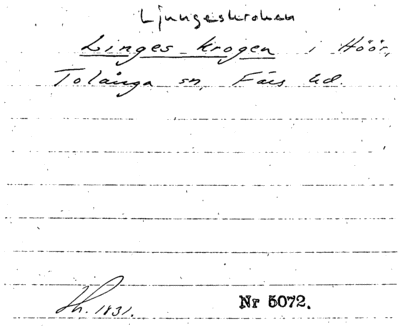 Ljungeskroken
Linges krogen i Höör,
Tolånga sn, Färs hd.
Sk. 1831.
Nr 5072.